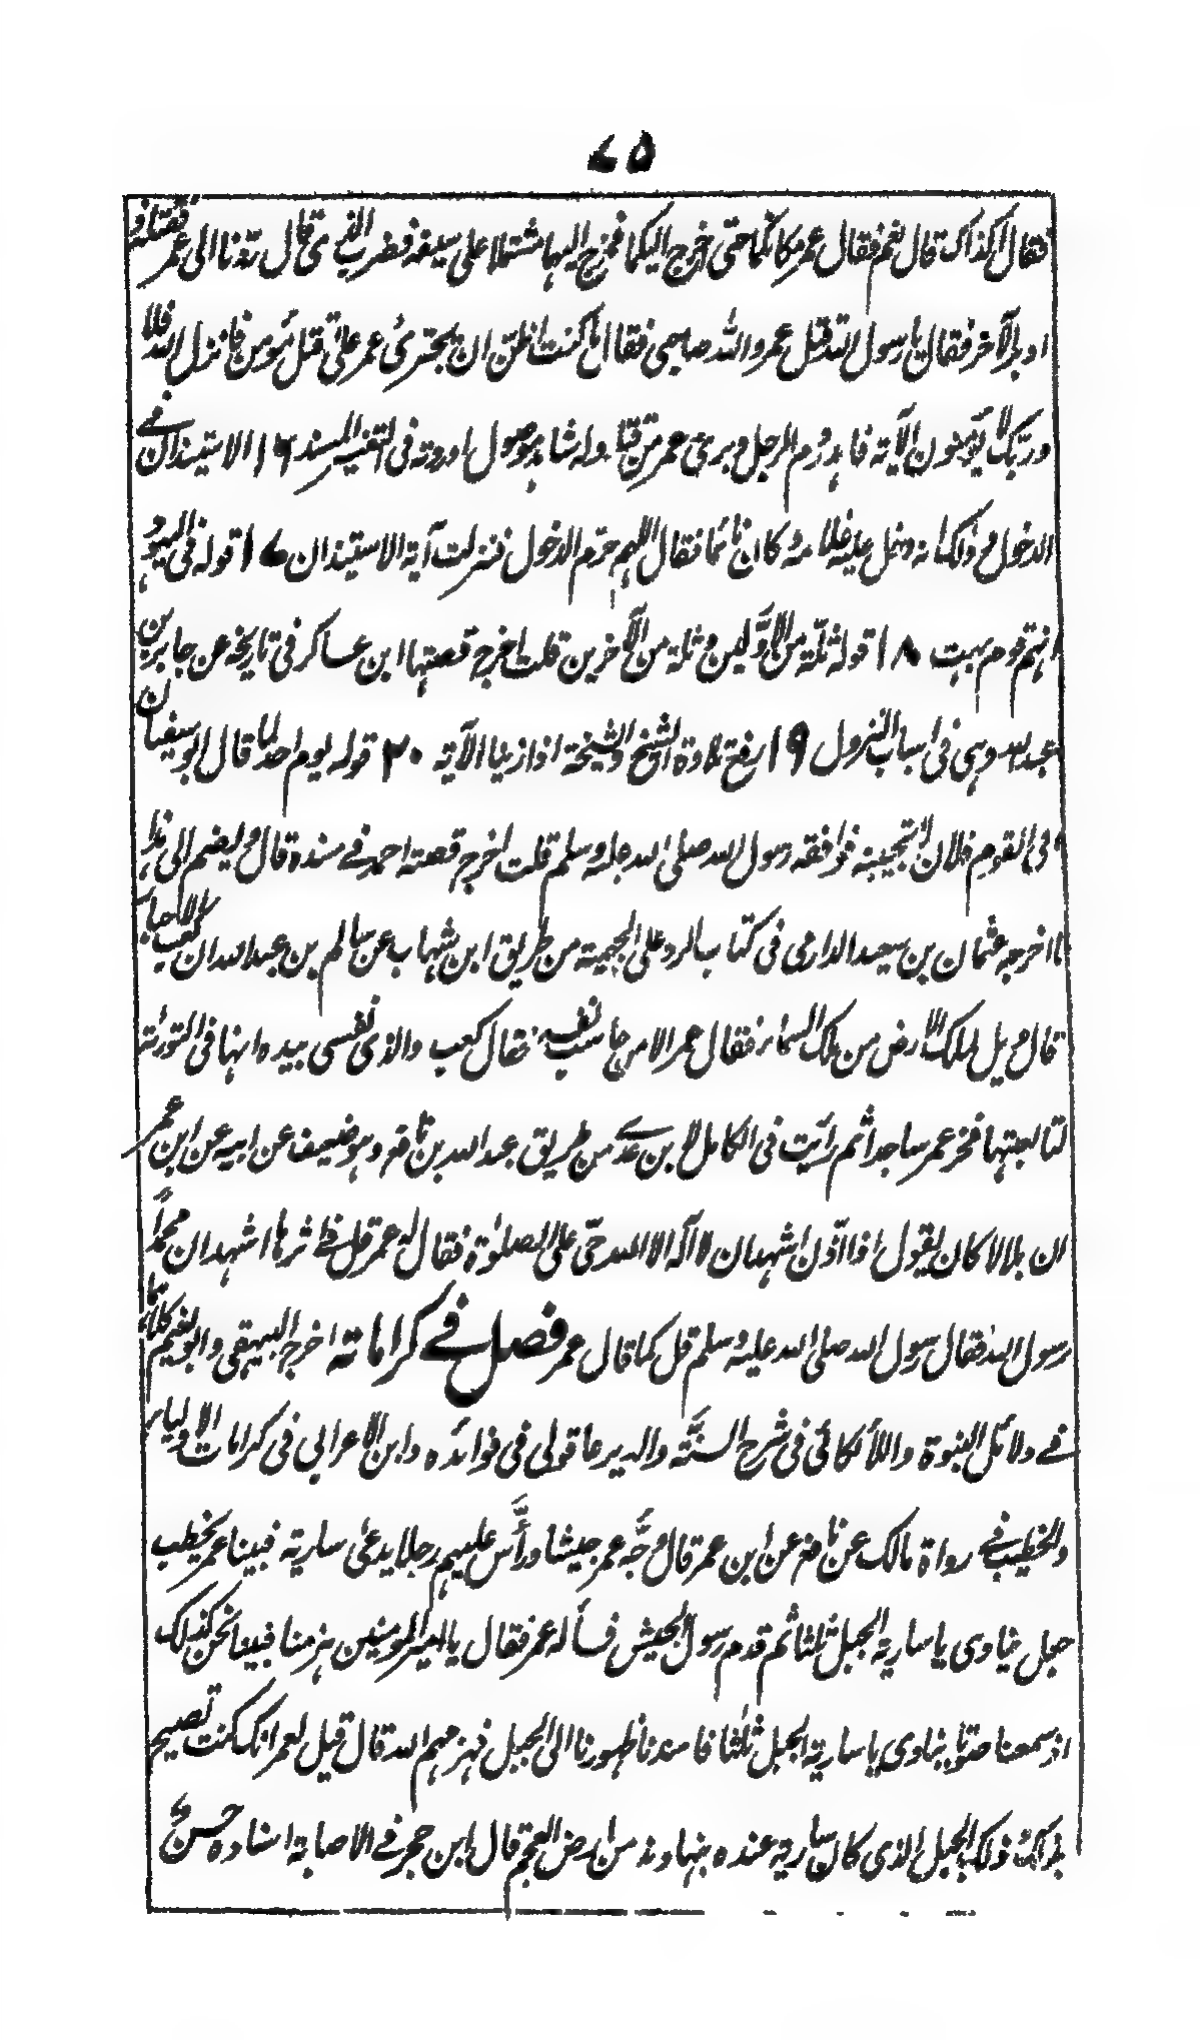 ٧٥
فقال اكذاك قال نعم فقال عمر مكانكما حتى اخرج اليكما فخرج اليهما مشتملا على سيفه فضرب الذى قال ردنا الى عمر فقتله و
ادبر الآخر فقال يا رسول الله قتل عمر والله صاحبى فقال ما كنت اظن ان يجترئ عمر على قتل مؤمن فانزل الله فلا
وربك لا يؤمنون الآية فاهدر دم الرجل وبرئ عمر من قتله وله شاهد موصول اوردته فى التفسير المسند ١٦ الاستيذان فے
الدخول وذلك انه دخل عليه غلامه وكان نائما فقال اللهم حرم الدخول فنزلت آية الاستيذان ١٧ قوله فى اليهود
انهم قوم بهت ١٨ قوله ثلة من الاولين وثلة من الآخرين قلت اخرج قصتها ابن عساكر فى تاريخه عن جابر بن
عبد الله وهى فى اسباب النزول ١٩ رفع تلاوة الشيخ والشيخة اذا زنيا الآية ٢٠ قوله يوم احد لما قال ابو سفيان
افى القوم فلان لا تجيبنه فوافقه رسول الله صلى الله عليه وسلم قلت اخرج قصته احمد فے مسنده قال ويضم الى هذا
ما اخرجه عثمان بن سعيد الدارمى فى كتاب الرد على الجهمية من طريق ابن شهاب عن سالم بن عبد الله ان كعب الاحبار
قال ويل لملك الارض من ملك السماء فقال عمر الا من حاسب نفسه فقال كعب والذى نفسى بيده انها فى التوراة
لتابعتها فخر عمر ساجدا ثم رأيت فى الكامل لابن عدے من طريق عبد الله بن نافع وهو ضعيف عن ابيه عن ابن عمر
ان بلالا كان يقول اذا اذن اشهد ان لا اله الا الله حى على الصلوة فقال له عمر قل فے اثرها اشهد ان محمدا
رسول الله فقال رسول الله صلى الله عليه وسلم قل كما قال عمر فصل فے كراماته اخرج البيهقى وابو نعيم كلاهما
فے دلائل النبوة واللالكائى فى شرح السنة والديرعاقولى فى فوائده وابن الاعرابى فى كرامات الاولياء
والخطيب فے رواة مالك عن نافع عن ابن عمر قال وجه عمر جيشا ورأس عليهم رجلا يدعى سارية فبينا عمر يخطب
جعل ينادى يا سارية الجبل ثلثا ثم قدم رسول الجيش فسأله عمر فقال يا امير المؤمنين هزمنا فبينا نحن كذلك
اذ سمعنا صوتا ينادى يا سارية الجبل ثلثا فاسندنا ظهورنا الى الجبل فهزمهم الله قال قيل لعمر انك كنت تصيح
بذلك وذلك الجبل الذى كان سارية عنده بنهاوند من ارض العجم قال ابن حجر فے الاصابة اسناده حسن و